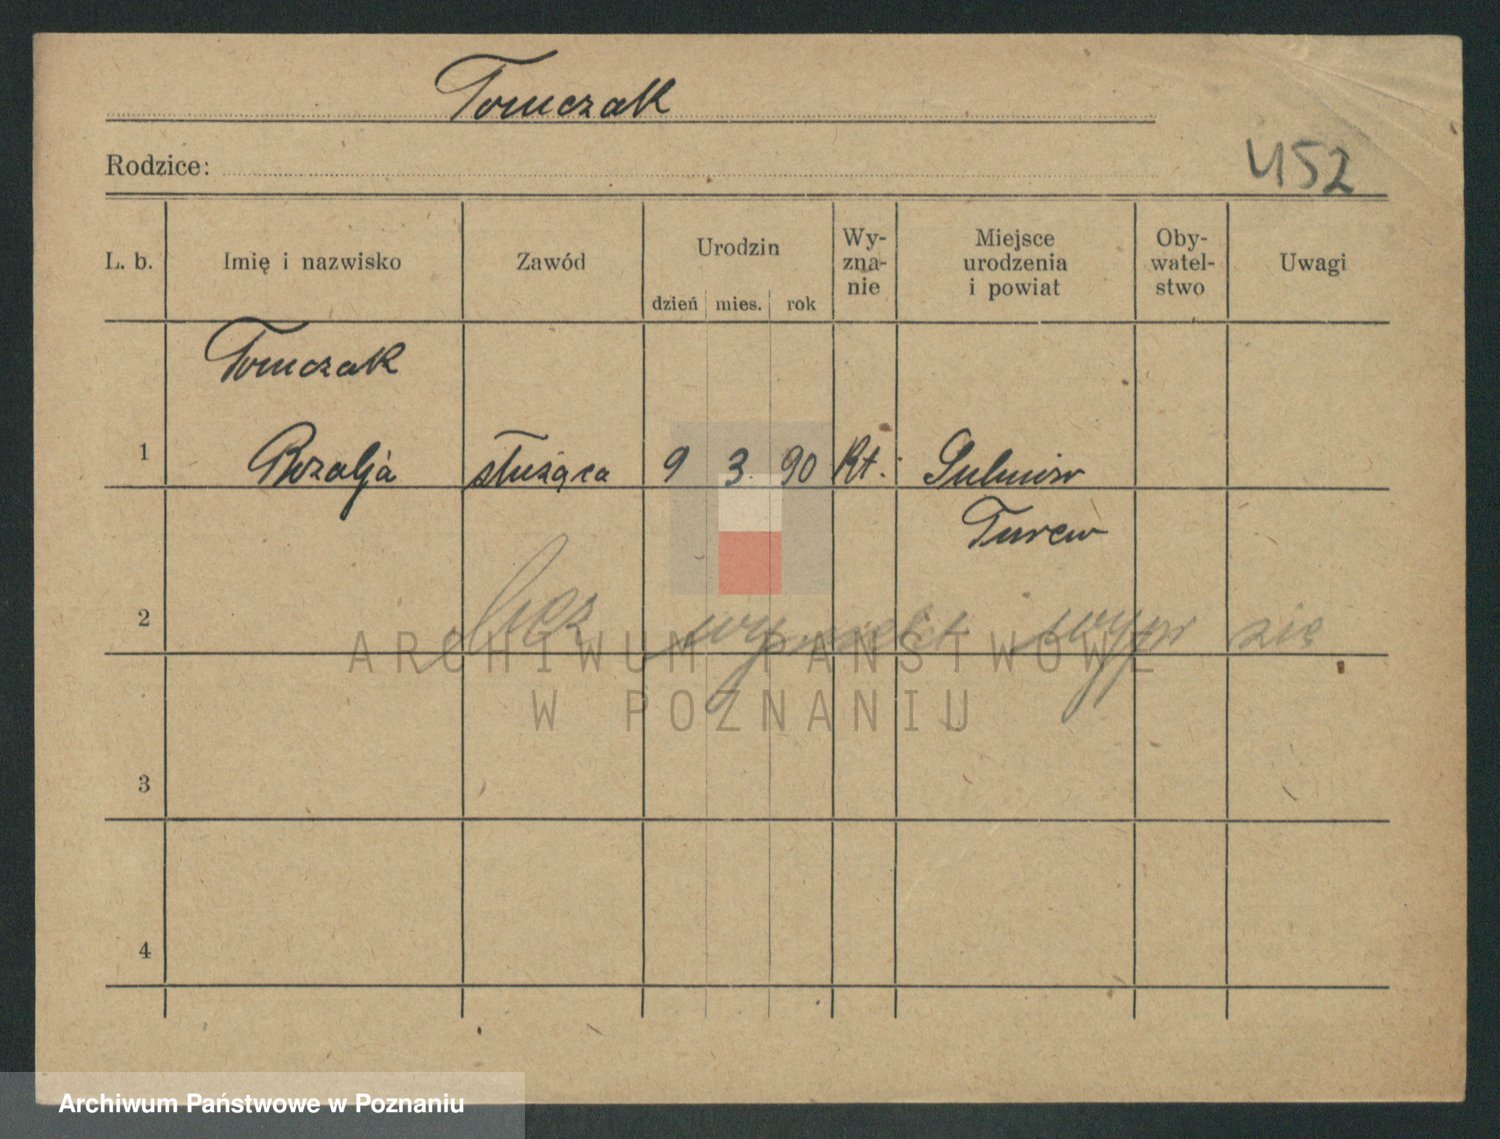 Tomczak
Rodzice:
452
L. b. Imię i nazwisko Zawód Urodzin dzień mies. rok Wy-zna-nie Miejsce urodzenia i powiat Oby-watel-stwo Uwagi
Tomczak
1 Rozalja służąca 9 3 90 Rt.
Turew
2 bez się
ARCHIWUM PAŃSTWOWE
W POZNANIU
3
4
Archiwum Państwowe w Poznaniu